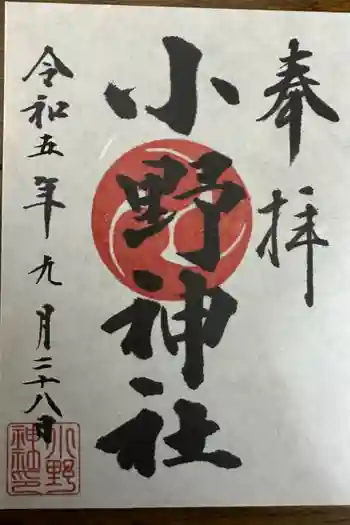 奉拝
小野神社
令和五年九月二十八日
小野
神社印